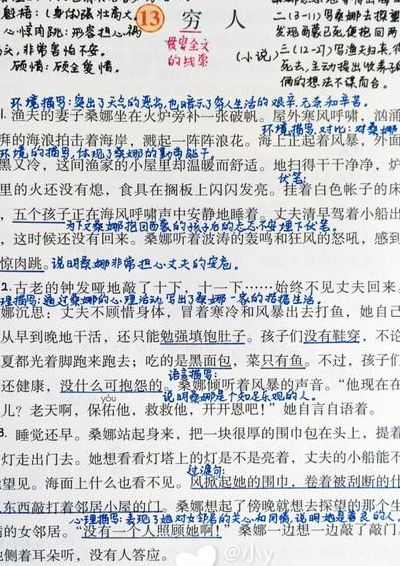 魁梧:(身体)强壮高大
心惊肉跳:形容担心祸
非常害怕不安。
顾惜:顾全爱惜。
13 穷人
贯穿全文
的线索
(小说)
二(3—11)写桑娜去探望
发现西蒙已死,便抱回两
三(12—27)写渔夫归来,得
死去,主动提出收养孑
俩的想法不谋而合。
环境描写:突出了天气的恶劣,也暗示了穷人生活的艰辛、无奈和辛苦。
1.渔夫的妻子桑娜坐在火炉旁补一张破帆。屋外寒风呼啸,汹涌
环境描写,对比:对桑娜
湃的海浪拍击着海岸,溅起一阵阵浪花。海上正起着风暴,外面
环境的描写,体现了桑娜的勤劳能干。
黑又冷,这间渔家的小屋里却温暖而舒适。地扫得干干净净,炉
伏笔:
里的火还没有熄,食具在搁板上闪闪发亮。挂着白色帐子的床
,五个孩子正在海风呼啸声中安静地睡着。丈夫清早驾着小船出
为下文桑娜抱回西蒙的孩子后的忐忑不安埋下伏笔。
,这时候还没有回来。桑娜听着波涛的轰鸣和狂风的怒吼,感到
惊肉跳。说明桑娜非常担心丈夫的安危。
2.古老的钟发哑地敲了十下,十一下……始终不见丈夫回来。
理描写:通过桑娜的心理活动写出了桑娜一家的拮据生活。
娜沉思:丈夫不顾惜身体,冒着寒冷和风暴出去打鱼,她自己
从早到晚地干活,还只能勉强填饱肚子。孩子们没有鞋穿,不论
夏都光着脚跑来跑去;吃的是黑面包,菜只有鱼。不过,孩子们
语言描写:
还健康,没什么可抱怨的。桑娜倾听着风暴的声音。“他现在在
yòu 说明桑娜是个知足乐观的人。
儿?老天啊,保佑他,救救他,开开恩吧!”她自言自语着。
3.睡觉还早。桑娜站起身来,把一块很厚的围巾包在头上,提着
灯走出门去。她想看看灯塔上的灯是不是亮着,丈夫的小船能不
过渡句:
望见。海面上什么也看不见。风掀起她的围巾,卷着被刮断的什
东西敲打着邻居小屋的门。桑娜想起了傍晚就想去探望的那个生
心理描写:表现了她对女邻居的关心和同情,说明她是善良的人。
的女邻居。“没有一个人照顾她啊!”桑娜一边想一边敲了敲门。
她侧着耳朵听,没有人答应。